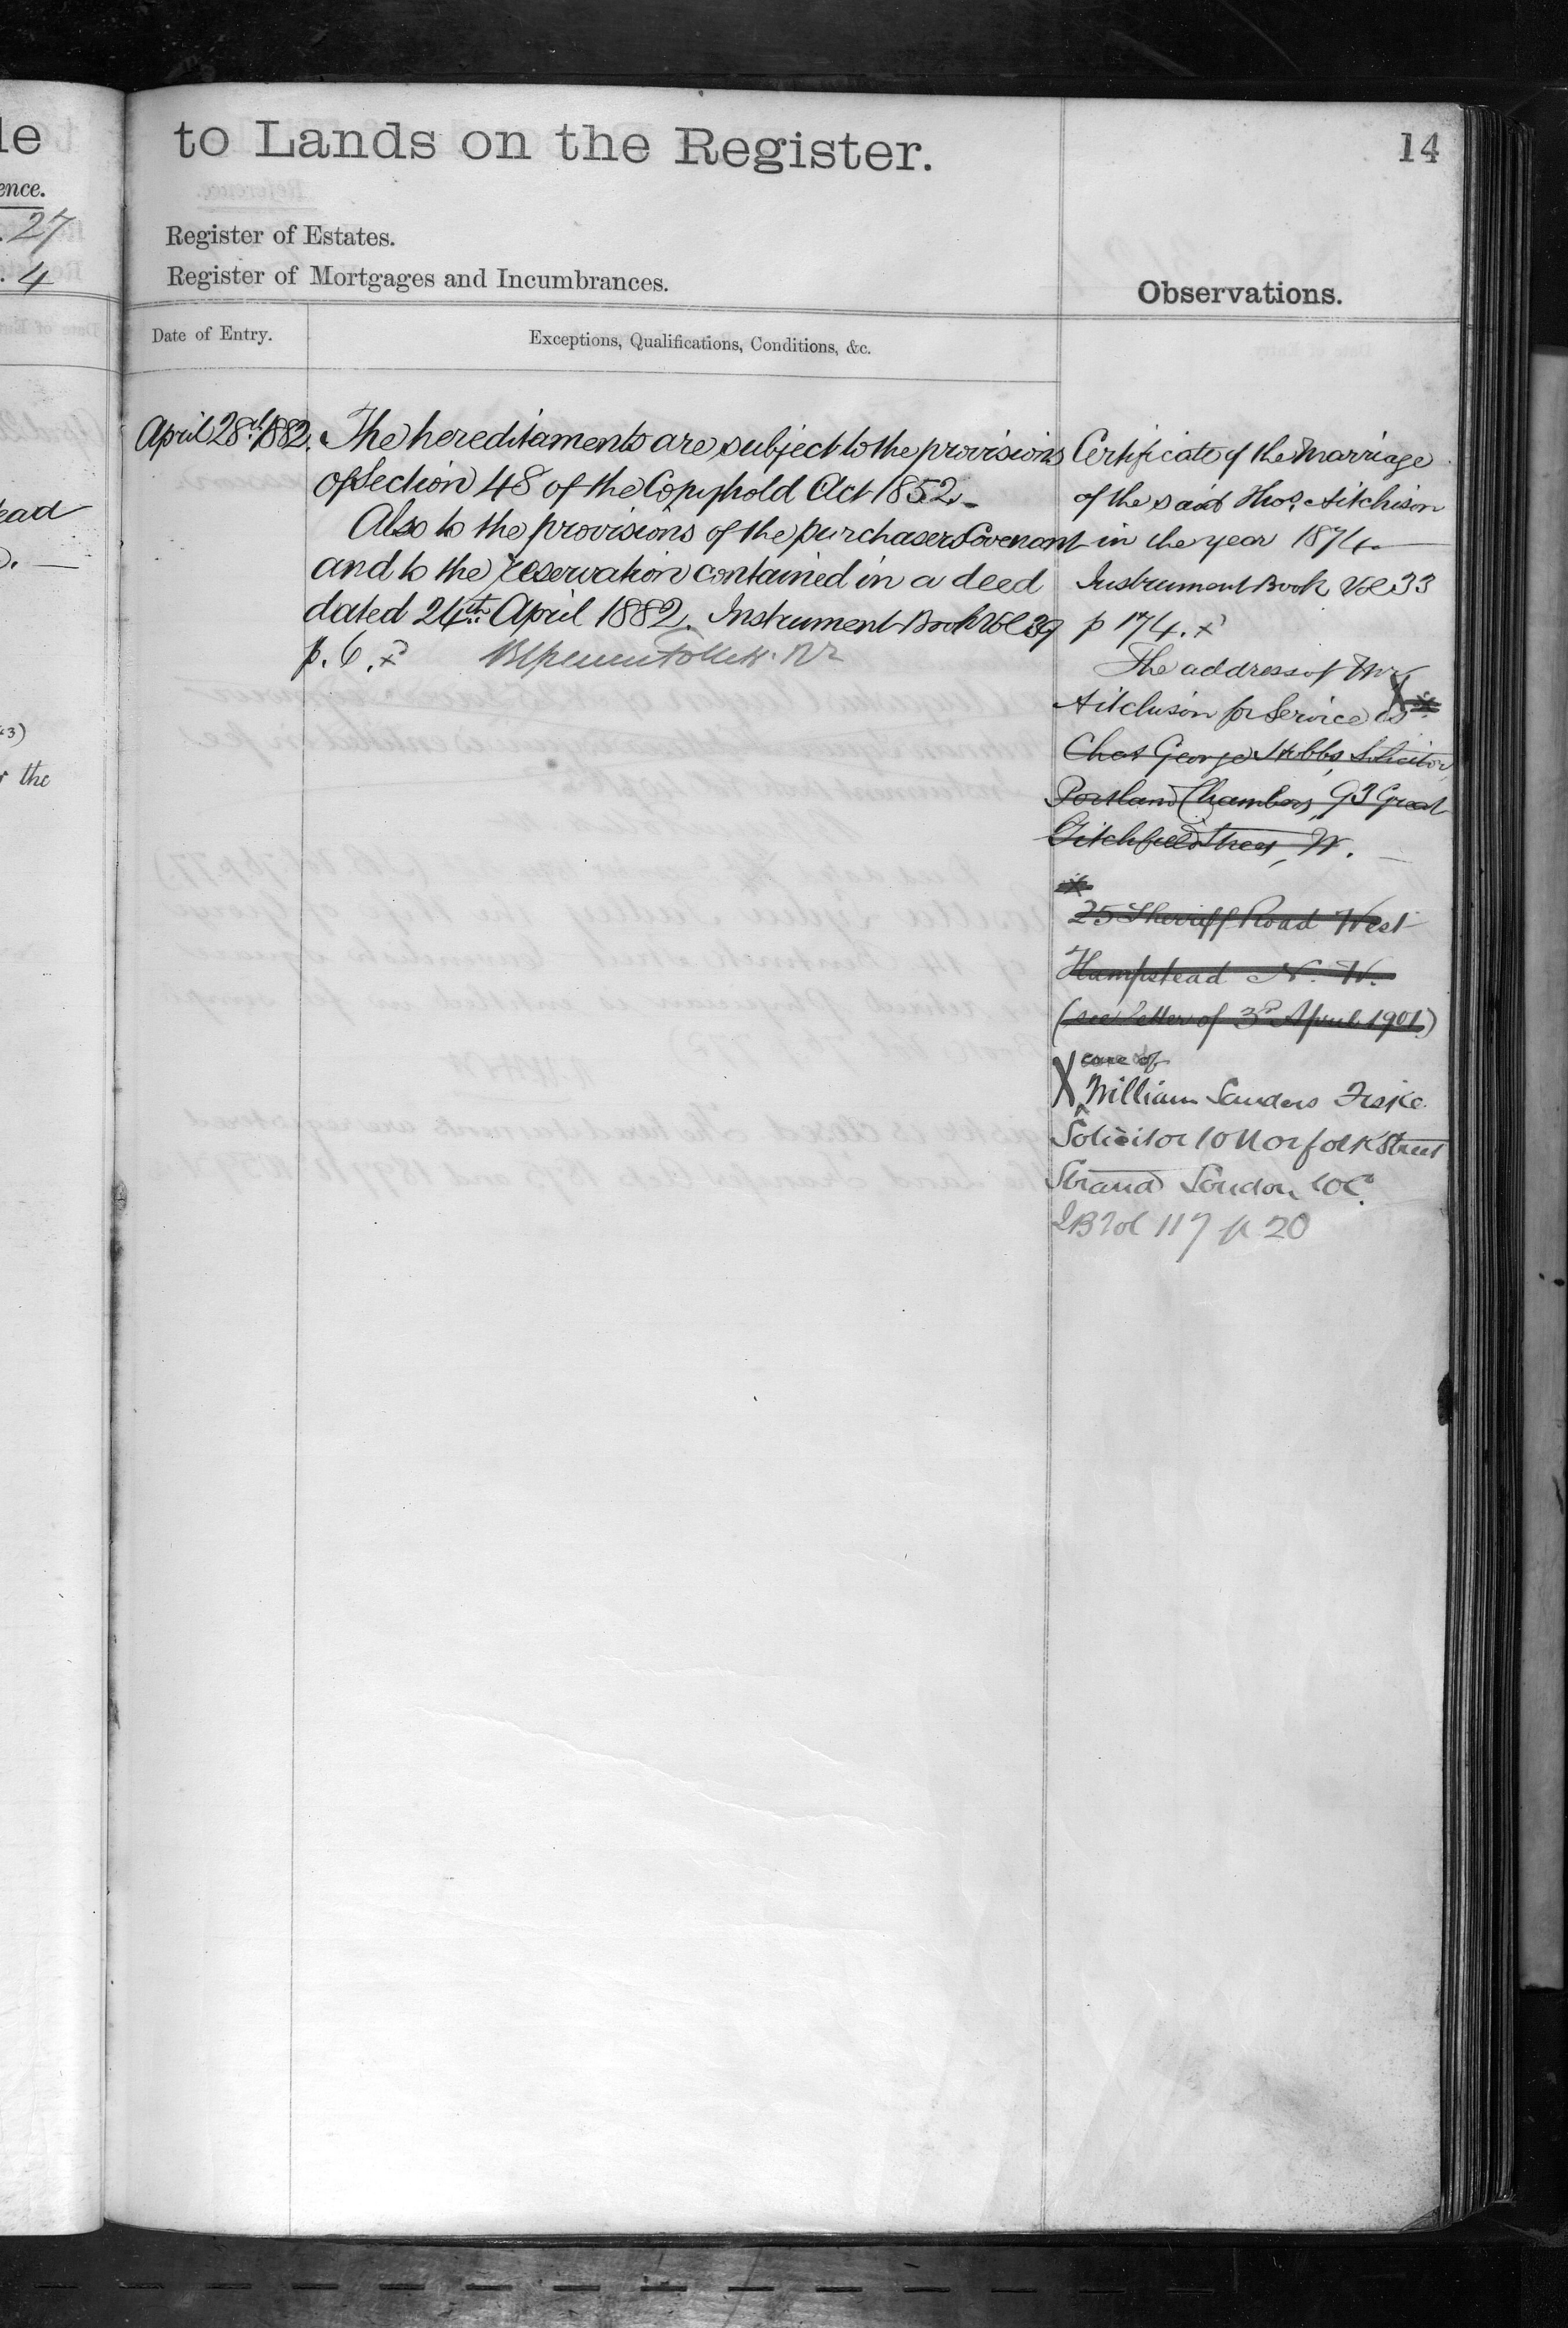 le
ence.
27
4
ead
the
to Lands on the Register.
14
Register of Estates.
Register of Mortgages and Incumbrances.
Observations.
Date of Entry.
Exceptions, Qualifications, Conditions, &c.
April 28th 1882.
The hereditaments are subject to the provisions
of Section 48 of the Copyhold Act 1852.
Also to the provisions of the purchasers Covenant
and to the reservation contained in a deed
dated 24th April 1882. Instrument Book Vol 39
p. 6. x
Certificate of the Marriage
of the said Thos. Aitchison
in the year 1874
Instrument Book Vol 33
p 174. x
The address of Mr
Aitchison for Service is X
Chas George Stubbs, Solicitor
Portland Chambers, 93 Great
Titchfield Street, W.
25 Sherriff Road West
Hampstead N. W.
(see Letter of 3d April 1901)
care of
X William Sanders Fiske
Solicitor 10 Norfolk Street
Strand London WC.
IB Vol 117 p 20